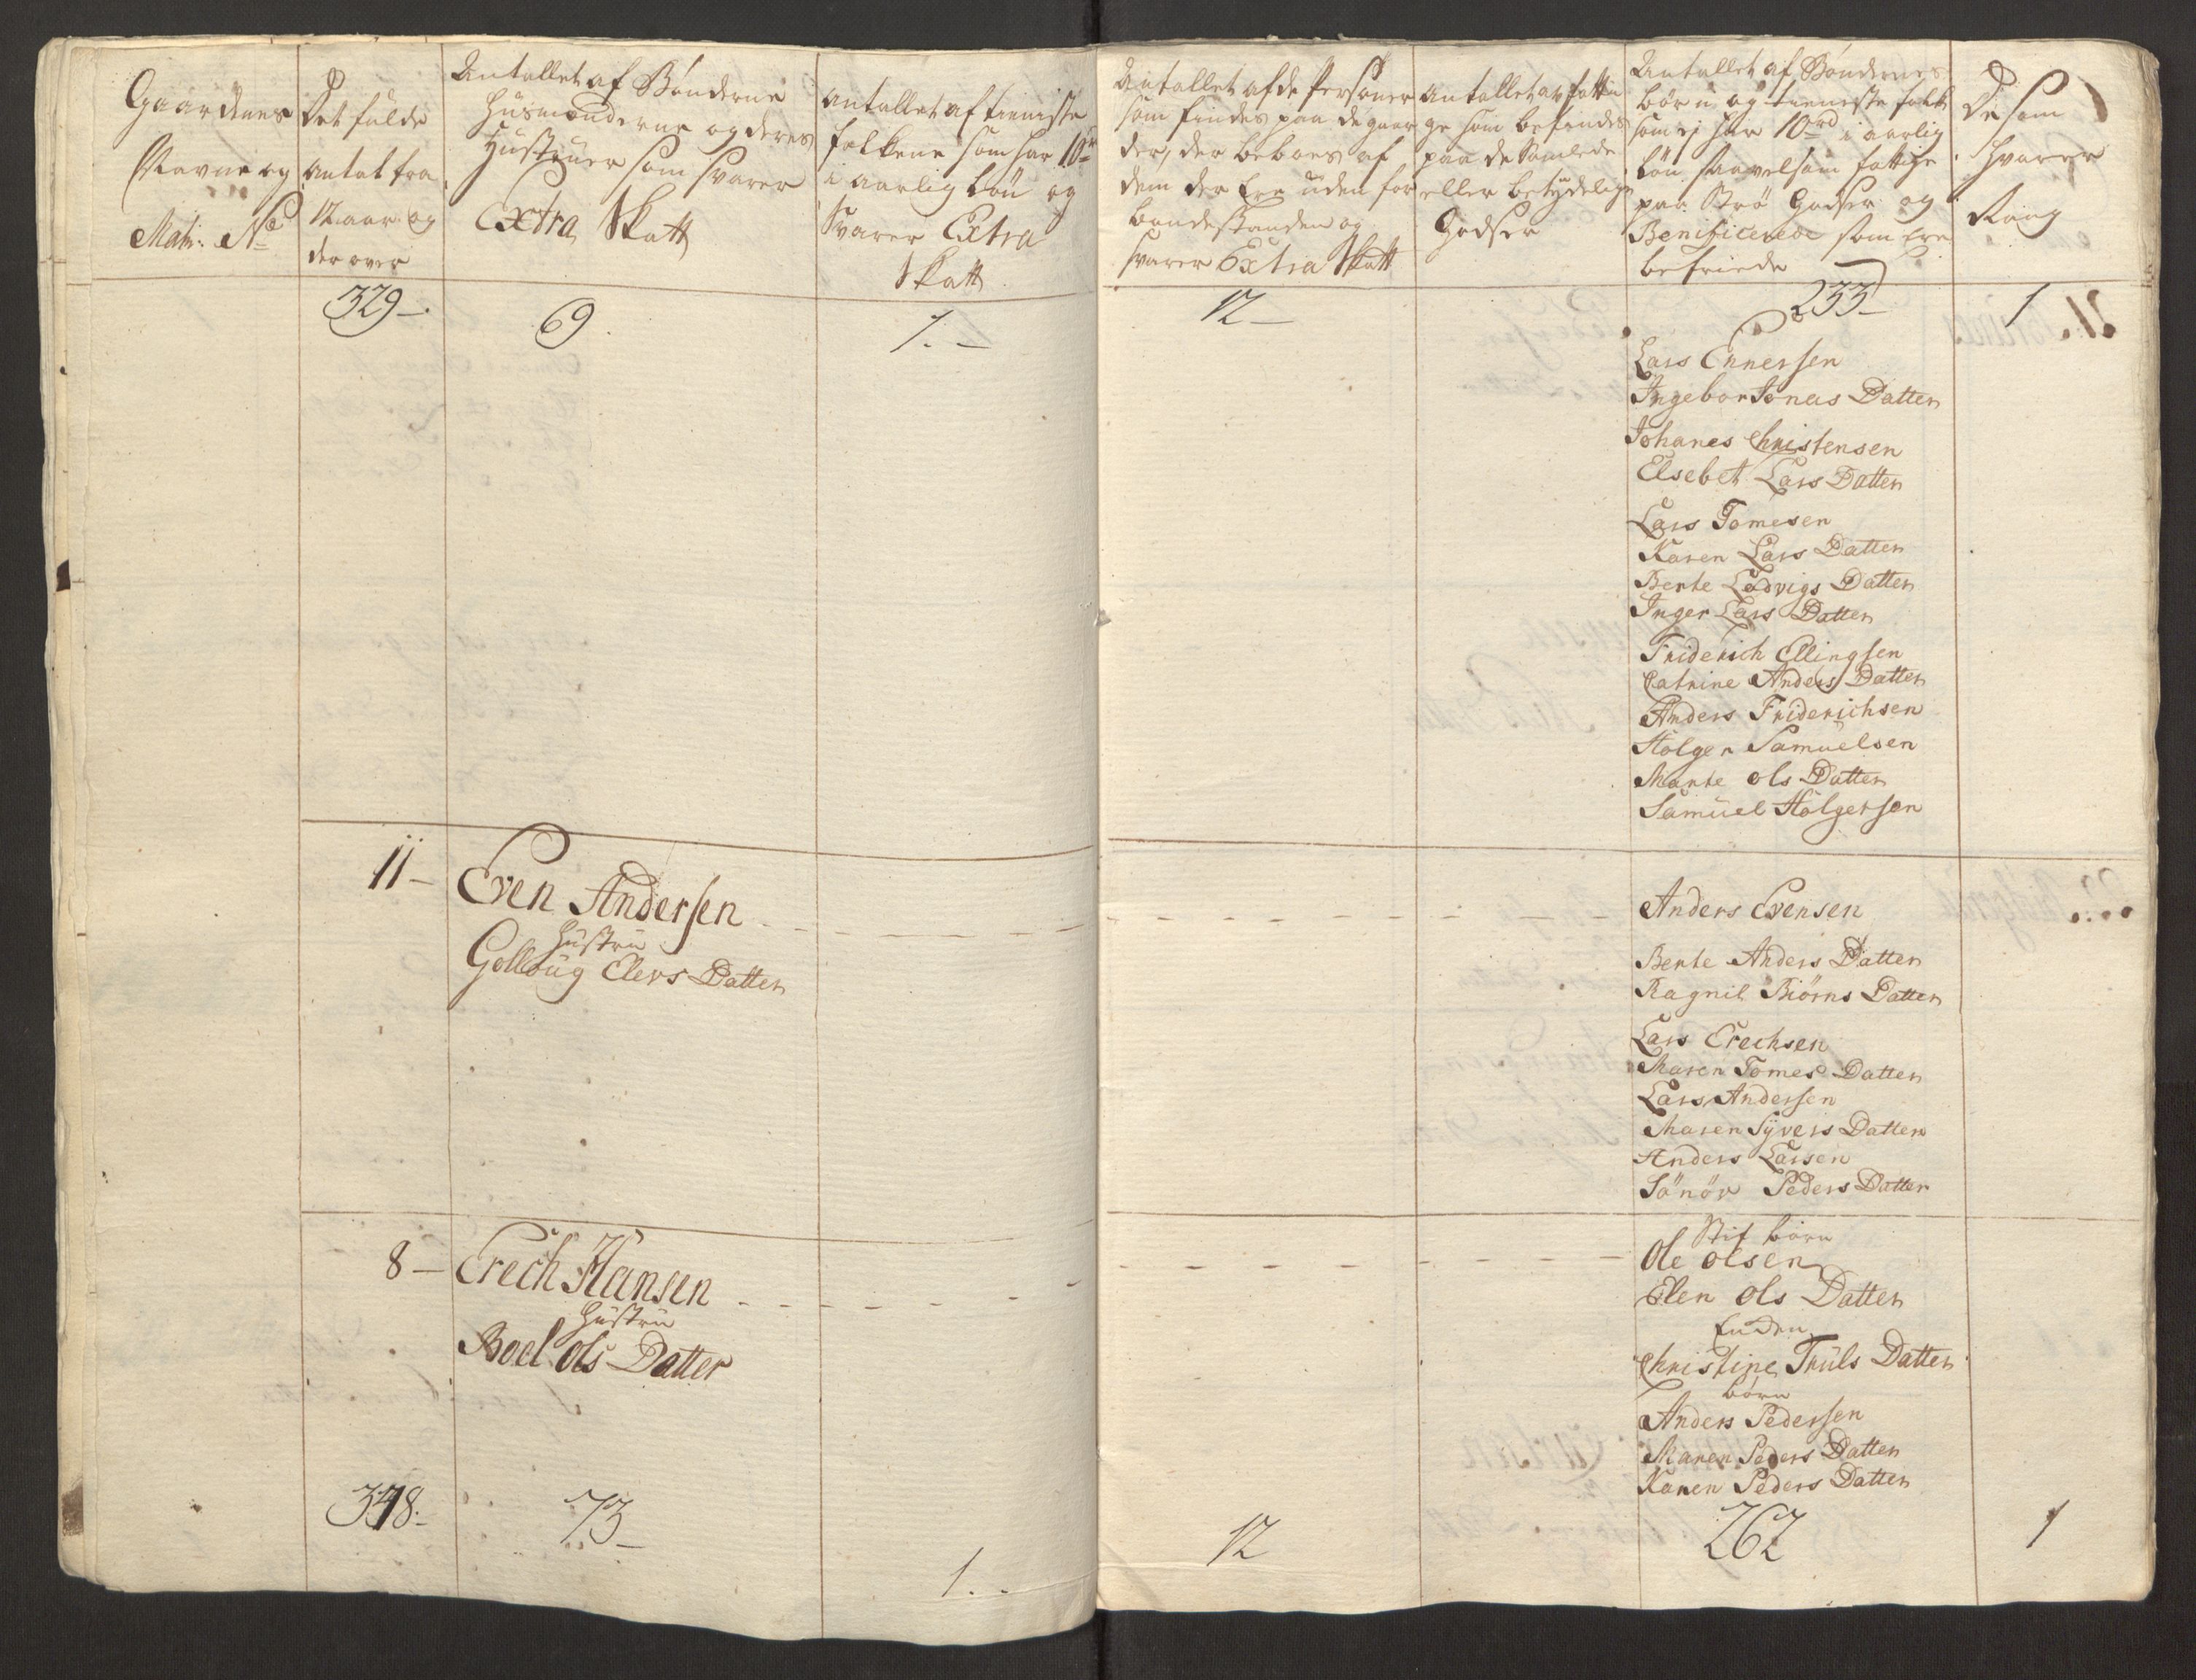 Gaardenes
Navne og
Matr: No
Det fulde
antal fra
12 aar og
der over
Antallet af Bønderne
Husmænderne og deres
Hustruer som svarer
Extra Skatt
Antallet af tieniste
folkene som har 10rd
i aarlig Løn og
Svarer Extra
Skatt
Antallet af de Personer
som findes paa de gaar
der, der beboes af
dem der Ere uden for
bondestanden og
svarer Extra Skatt
Antallet av fatti
ge som befindes
paa de Samlede
eller betydelige
Godser
Antallet af Bøndernes
børn og tieneste folk
som ej har 10rd i aarlig
Løn saavelsom fattige
paa Strø Godser og
Beneficerede som Ere
befriede
De som
svarer
Rang
329 -
69.
1. -
12 -
233 -
1
Lars Ennersen
Ingebor Jonas Datter
Johanes Christensen
Elsebet Lars Datter
Lars Tomesen
Karen Lars Datter
Berte Ludvigs Datter
Inger Lars Datter
Friderich Ellingsen
Catrine Anders Datter
Anders Friderichsen
Holger Samuelsen
Marte Ols Datter
Samuel Holgersen
11 -
Even Andersen
Hustru
Golloug Elers Datter
Anders Evensen
Berte Anders Datter
Ragnil Biørns Datter
Lars Erechsen
Maren Tomes Datter
Lars Andersen
Maren Syvers Datter
Anders Larsen
Sønøv Peders Datter
8 -
Erech Hansen
Hustru
Boel Ols Datter
Stif børn
Ole Olsen
Elen Ols Datter
Enden
Christine Truls Datter
børn
Anders Pedersen
Maren Peders Datter
Karen Peders Datter
348.-
73 -
1. -
12
262
1